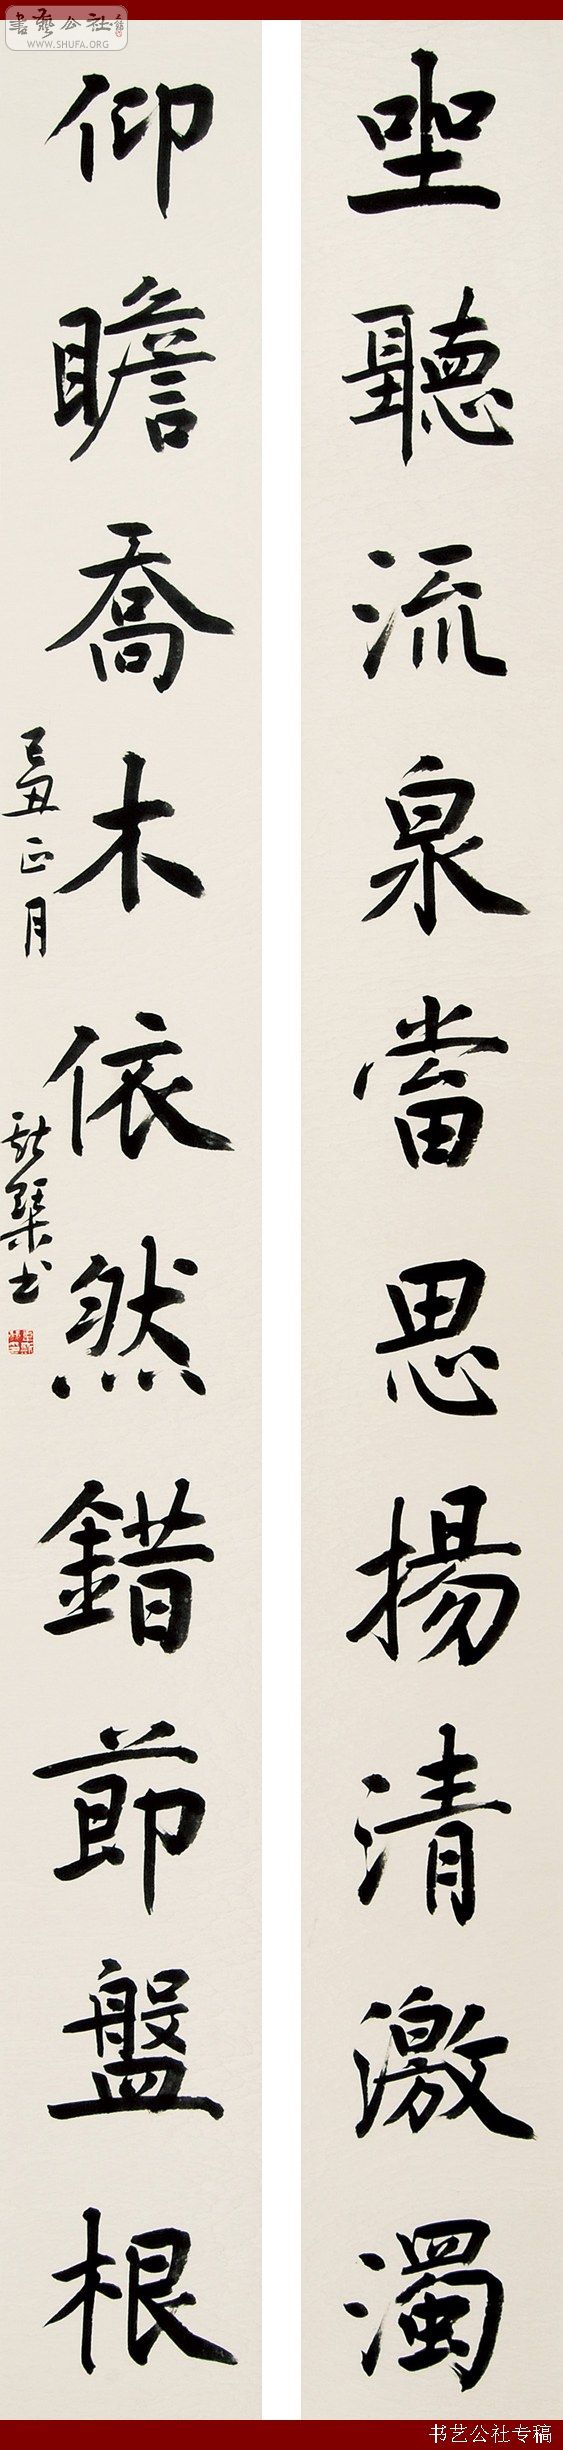 坐聽流泉當思揚清激濁
仰瞻喬木依然錯節盤根
己丑正月
書藝公社
WWW.SHUFA.ORG
书艺公社专稿